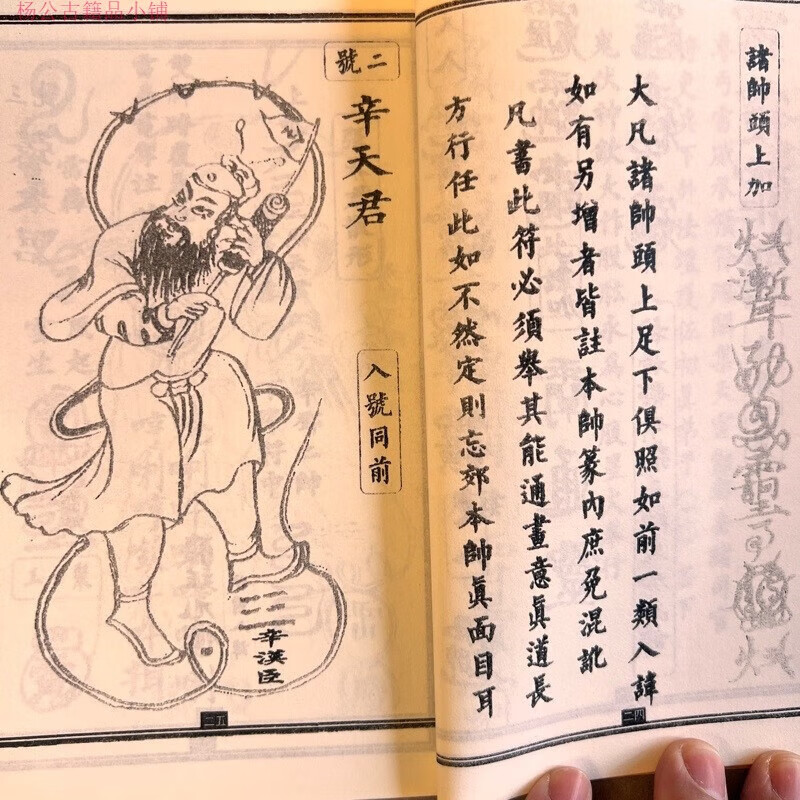 杨公古籍品小铺
諸帥頭上加
大凡諸帥頭上足下俱照如前一類入諱
如有另增者皆註本帥篆內庶免混訛
凡書此符必須舉其能通畫意眞道長
方行任此如不然定則忘郊本帥眞面目耳
二四
二號
辛天君
入號同前
辛漢臣
二五